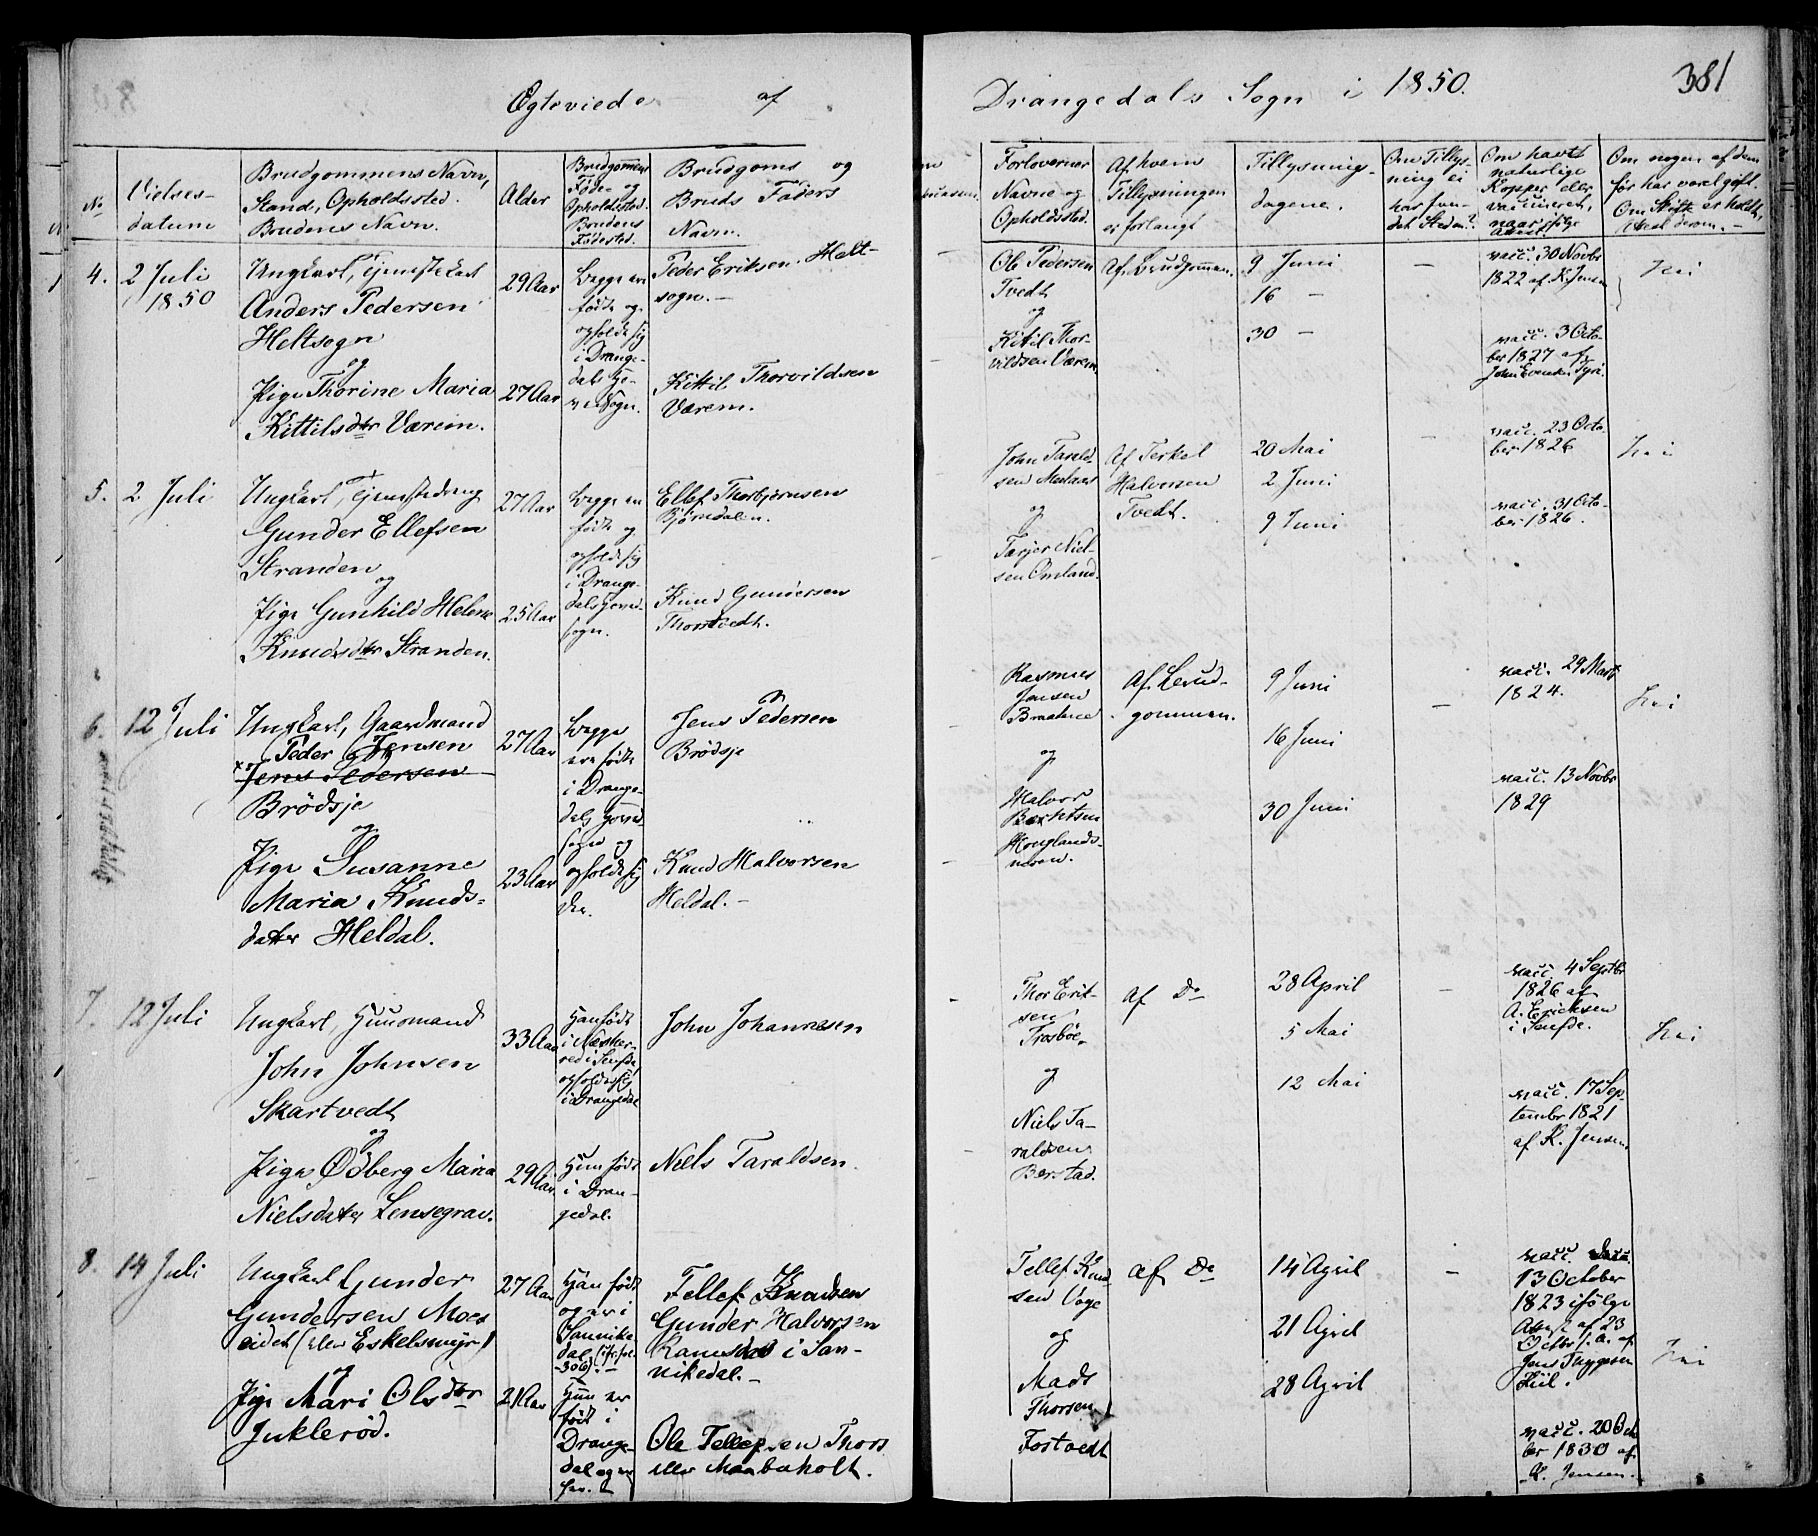 Egteviede af
Drangedals Sogn i 1850.
381
No
Vielses-
datum
Brudgommens Navn,
Stand, Opholdssted.
Brudens Navn.
Alder
Brudgommens
Føde- og
Opholdssted.
Brudens
Fødested.
Brudgoms og
Bruds Faders
Navn.
Forlovernes
Navne og
Opholdssted.
Af hvem
Tillysningen
er forlangt
Tillysnings-
dagene.
Om Tillys-
ning ei
har fun-
det Sted
Om havt
naturlige
Kopper eller
vaccineret,
naar ifølge
Attest
Om nogen af dem
før har været gift.
Om Skifte er holdt,
Attest derom.
4.
2 Juli
1850
Ungkarl, Tjenestekarl
Anders Pedersen
Heltsogn
og
Pige Thorine Maria
Kittilsdtr Værem.
29 Aar
27 Aar
begge ere
fødte og
opholde sig
i Drange-
dals Ho-
vedsogn.
Peder Eriksen Helt-
sogn.
Kittil Thorvildsen
Værem.
Ole Pedersen
Tvedt
og
Kittil Thor-
vildsen Værem
Af Brudgommen
9 Juni
16 -
30 -
-
vacc. 30 Novbr
1822 af K. Jensen
vacc. 3 Octo-
ber 1827 af
John Evensen
Nei
5.
2 Juli
Ungkarl, Tjenestedreng
Gunder Ellefsen
Stranden
og
Pige Gunhild Helene
Knudsdtr Stranden.
27 Aar
25 Aar
begge ere
fødte og
opholde sig
i Drange-
dals Hoved-
sogn.
Ellef Thorbjørnsen
Bjørndalen.
Knud Gundersen
Thorstvedt.
John Tarald-
sen
og
Tarjer Niel-
sen Omland.
Af Terkel
Halvorsen
Tvedt.
20 Mai
2 Juni
9 Juni
-
vacc. 23 Octo-
ber 1826
vacc. 31 Octo-
ber 1826.
Nei
6.
12 Juli
Ungkarl, Gaardmand
Peder Jensen
Jens Pedersen
Brödsje
og
Pige Susanne
Maria Knuds-
datter Heldal.
27 Aar
23 Aar
begge
ere fødte
i Drange-
dals Hoved
sogn og
opholde sig
der.
Jens Pedersen
Brödsje
Knud Halvorsen
Heldal. -
Rasmus
Jensen
Braatene
og
Halvor
Berthsen
Houglands-
moen.
Af Brud-
gommen.
9 Juni
16 Juni
30 Juni
-
vacc. 29 Marts
1824.
vacc. 13 Novbr
1829
Nei
7.
12 Juli
Ungkarl, Huusmand
John Johnsen
Skartvedt
og
Pige Ødberg Maria
Nielsdatter Lensegrav.
33 Aar
29 Aar
Han født
i
opholder sig
i Drangedal
Hun født
i Dran-
gedal.
John Johannesen
Niels Taraldsen.
Thor Erik-
sen
Trosböe
og
Niels Ta-
raldsen
Berstad.
af Do
28 April
5 Mai
12 Mai
-
vacc. 4 Septbr
1826 af
A. Ericksen
vacc. 17 Sep-
tembr 1821
af K. Jensen.
Nei
8.
14 Juli
Ungkarl Gunder
Gundersen Moes
eidet (eller Eskelsmyr)
og
Pige Mari Olsdtr
Juklerød.
27 Aar
21 Aar
Han født
og er i
Sannike-
dal
Hun er
født i
Drange-
dal og er
her.
Tellef Knudsen
Gunder Halvorsen
i San-
nikedal. -
Ole Tellefsen Thors
eller Maabuholt.
Tellef Knud
sen Voge
og
Mads
Thorsen
Tostvedt
af Do
14 April
21 April
28 April
-
vacc.
13 October
1823 ifølge
Attest af 23
Octbr s. A. af
Jens Thygesen
Kiil.
vacc. 20 Oct
ber 1830 af
K. Jensen.
Nei